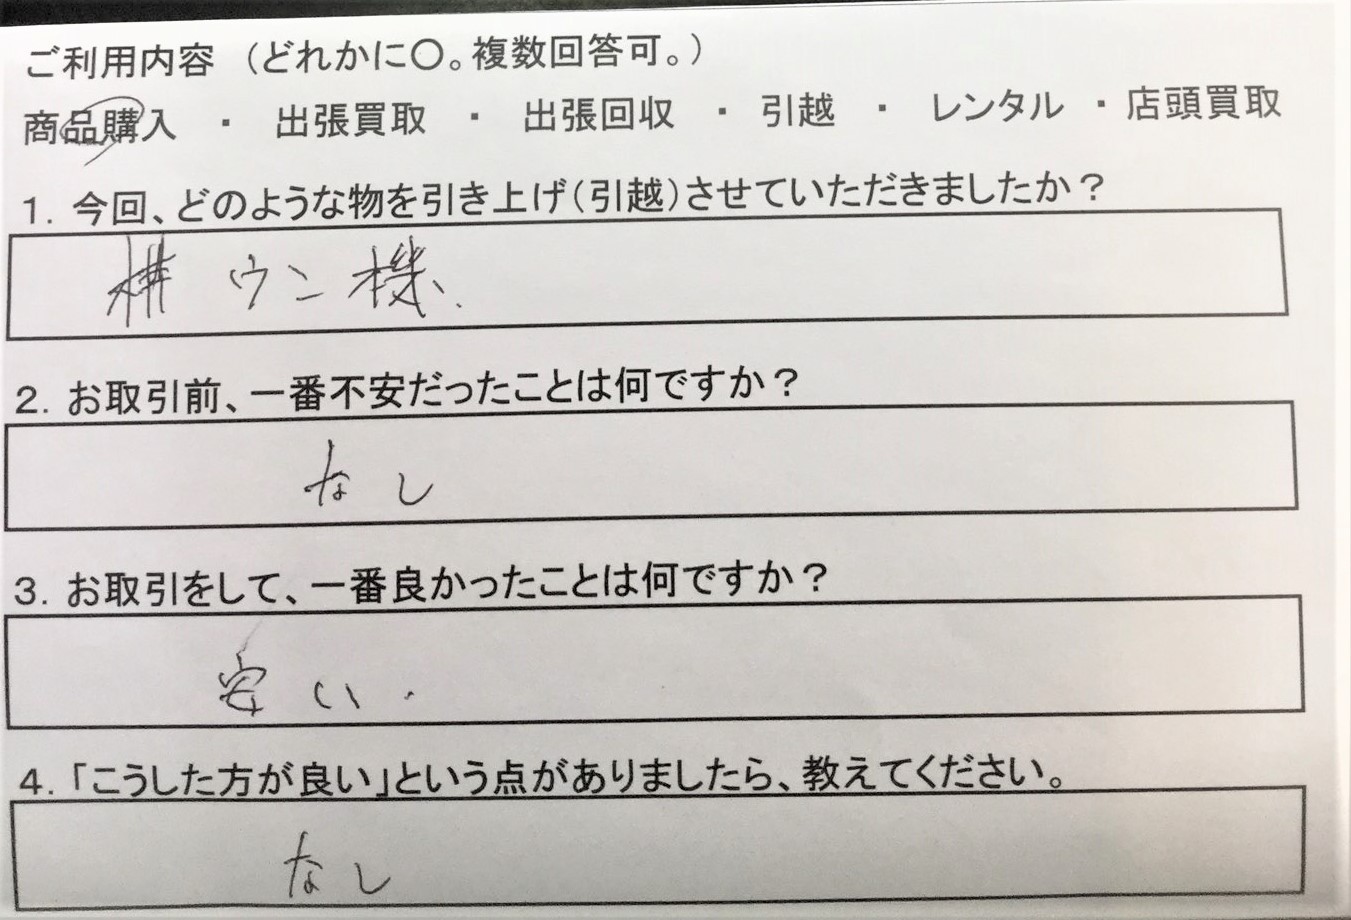 ご利用内容 (どれかに〇。複数回答可。)
商品購入 ・ 出張買取 ・ 出張回収 ・ 引越 ・ レンタル ・ 店頭買取
1. 今回、どのような物を引き上げ(引越)させていただきましたか?
耕ウン機、
2. お取引前、一番不安だったことは何ですか?
なし
3. お取引をして、一番良かったことは何ですか?
安い.
4. 「こうした方が良い」という点がありましたら、教えてください。
なし